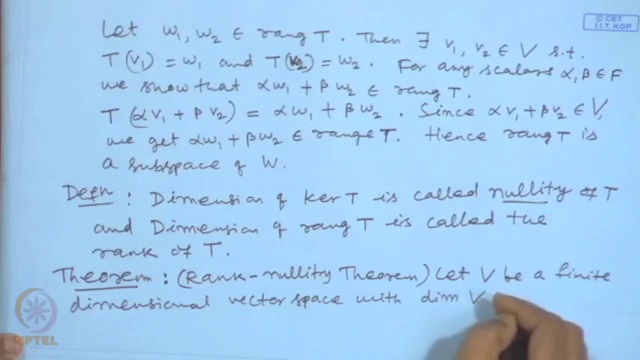 © CET
I.I.T. KGP
Let w₁, w₂ ∈ rang T. Then ∃ v₁, v₂ ∈ V s.t.
T(v₁) = w₁ and T(v₂) = w₂. For any scalars α, β ∈ F
we show that αw₁ + βw₂ ∈ rang T.
T(αv₁ + βv₂) = αw₁ + βw₂. Since αv₁ + βv₂ ∈ V,
we get αw₁ + βw₂ ∈ range T. Hence rang T is
a subspace of W.
Defn : Dimension of ker T is called nullity of T
and Dimension of rang T is called the
rank of T.
Theorem : (Rank-nullity Theorem) Let V be a finite
dimensional vector space with dim V
NPTEL